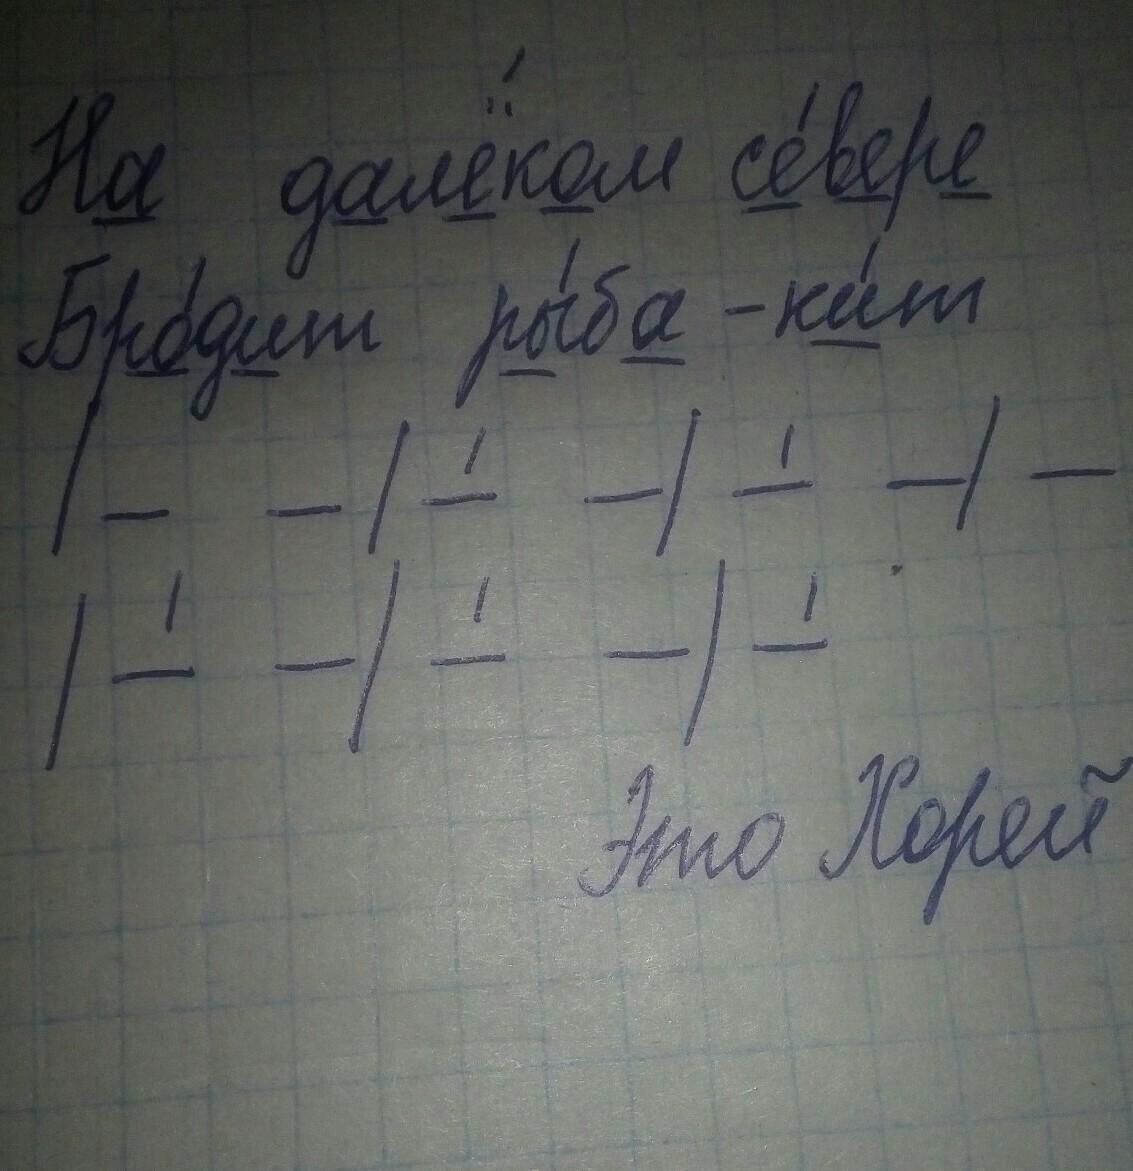 На далёком севере
Бродит рыба-кит
/ _ _ / _́ _ / _́ _ / _
/ _́ _ / _́ _ / _́
Это Хорей